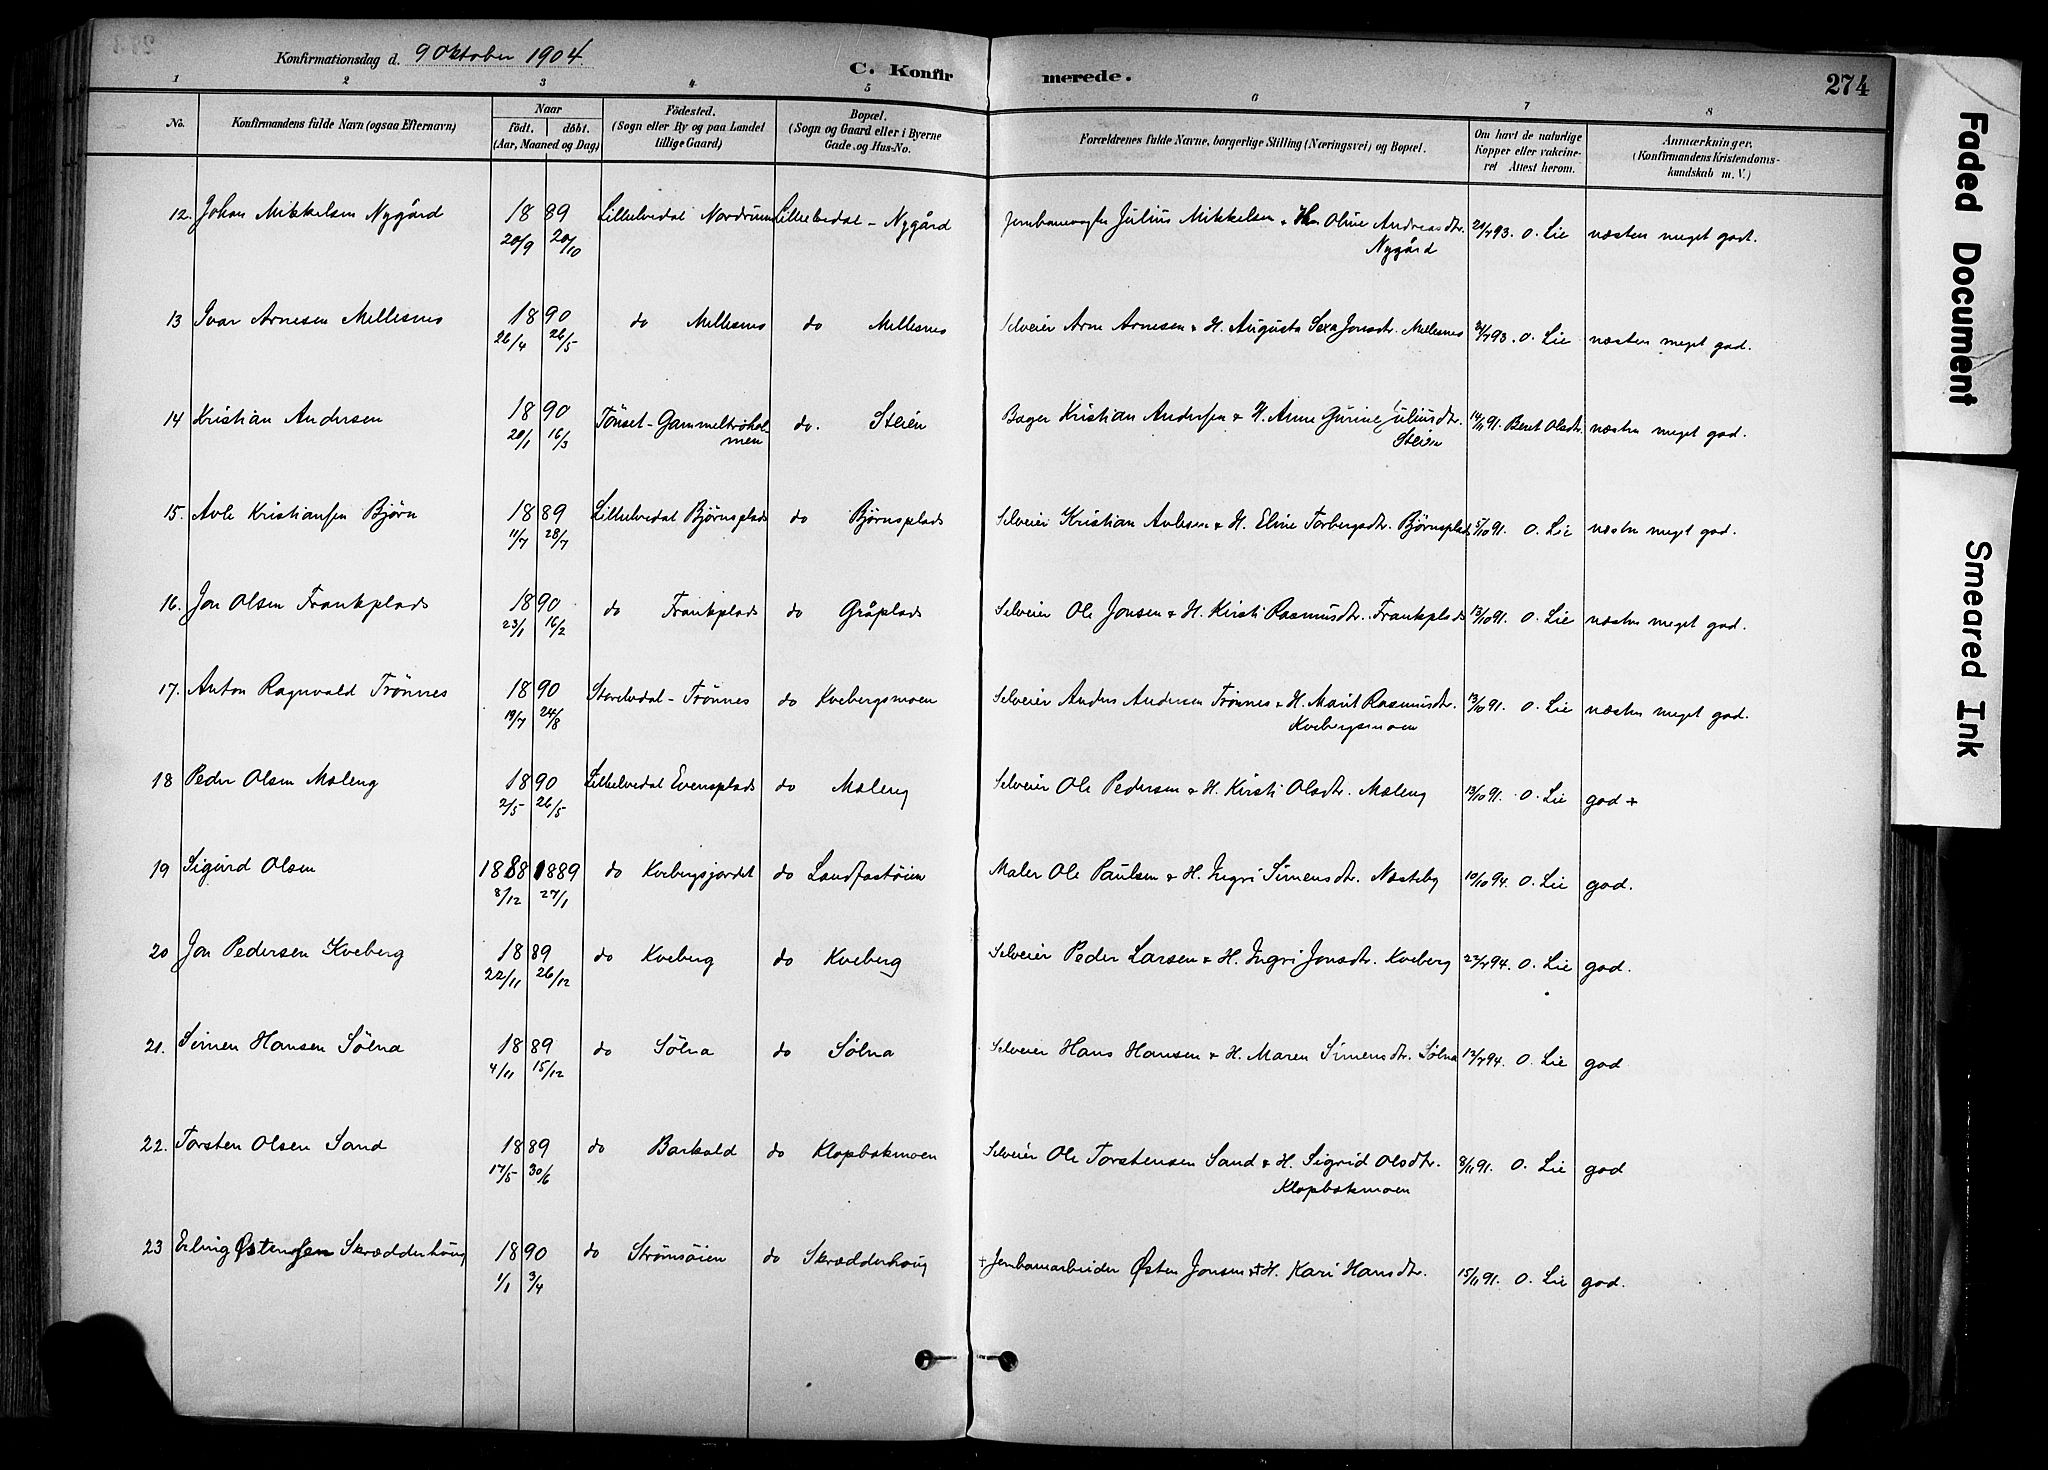 Konfirmationsdag d. 9 Oktober 1904.
C. Konfirmerede.
274
1 2 3 4 5 6 7 8
No.
Konfirmandens fulde Navn (ogsaa Efternavn)
Naar
födt. döbt.
(Aar, Maaned og Dag)
Födested.
(Sogn eller By og paa Landet
tillige Gaard)
Bopæl.
(Sogn og Gaard eller i Byerne
Gade og Hus-No.
Forældrenes fulde Navne, borgerlige Stilling (Næringsvei) og Bopæl.
Om havt de naturlige
Kopper eller vakcine-
ret Attest herom.
Anmærkninger.
(Konfirmandens Kristendoms-
kundskab m. V.)
12. Johan Mikkelsen Nygård 1889 Lilleelvedal Nordrum Lilleelvedal - Nygård Jernbanevogter Julius Mikkelsen & H. Oline Andreasdtr. 93. O. Lie næsten meget god.
20/9 20/10 Nygård
13 Ivar Arnesen Mellesmo 1890 do Mellesmo do Mellesmo Selveier Arne Arnesen & H. Augusta Jonsdtr. Mellesmo 93. O. Lie næsten meget god.
26/4 26/5
14 Kristian Andersen 1890 Tönset - Gammeltröhol- do. Steien Bager Kristian Andersen & H. Anne Gurine Juliusdtr. 14/11 91. Beret Olsdtr. næsten meget god.
20/1 16/3 men Steien
15. Avle Kristiansen Björn 1889 Lilleelvedal Björnsplads do Björnsplads Selveier Kristian Avlesen & H. Eline Torbergsdtr. Björnsplads 5/10 91. O. Lie næsten meget god.
11/7 28/7
16. Jon Olsen Frankplads 1890 do Frankplads do Gråplads Selveier Ole Jonsen & H. Kirsti Rasmusdtr. Frankplads 13/10 91. O. Lie næsten meget god.
23/1 16/2
17. Anton Ragnvald Trönnes 1890 Storelvedal - Trönnes do Kvebergsmoen Selveier Anders Andersen Trönnes & H. Marit Rasmusdtr. 13/10 91. O. Lie næsten meget god.
19/7 24/8 Kvebergsmoen
18 Peder Olsen Moleng 1890 Lilleelvedal Evensplads do Moleng Selveier Ole Pedersen & H. Kirsti Olsdtr. Moleng 13/10 91. O. Lie god +
2/5 26/5
19 Sigurd Olsen 1888 1889 do Kvebergsjordet do Landfastöien Maler Ole Paulsen & H. Ingri Simensdtr. Næsteby 10/10 94. O. Lie god.
8/12 27/1
20 Jon Pedersen Kveberg 1889 do Kveberg do Kveberg Selveier Peder Larsen & H. Ingri Jonsdtr. Kveberg 94. O. Lie god.
22/11 26/12
21. Simen Hansen Sölna 1889 do Sölna do Sölna Selveier Hans Hansen & H. Maren Simensdtr. Sölna 94. O. Lie god
4/11 15/12
22. Torsten Olsen Sand 1889 do Barkald do Klopbakmoen Selveier Ole Torstensen Sand & H. Sigrid Olsdtr. 8/11 91. O. Lie god
17/5 30/6 Klopbakmoen
23 Erling Østensen Skrædderhaug 1890 do Strömsöien do Skrædderhaug + Jernbanearbeider Østen Jonsen & + H. Kari Hansdtr. 15/11 91. O. Lie god.
1/1 3/4
Faded Document
Smeared Ink